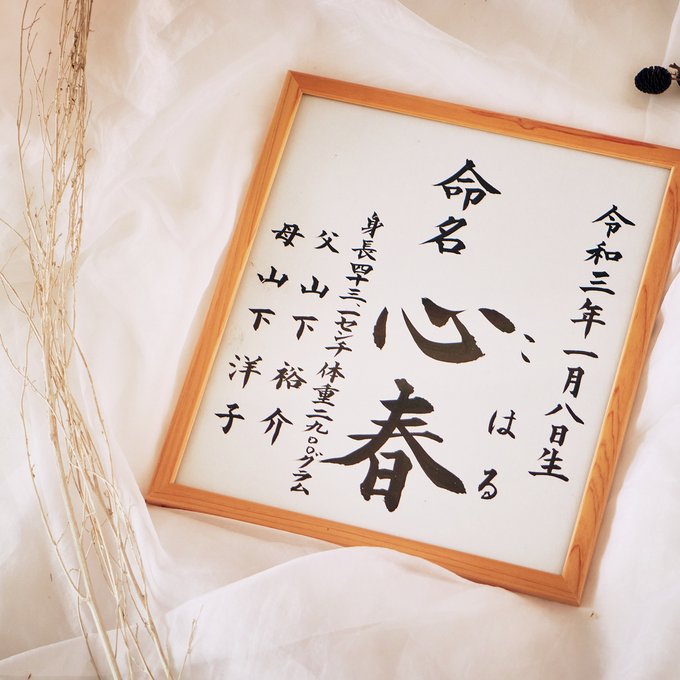 令和三年一月八日生
命名 心春
こはる
身長四十三.一センチ 体重二九〇〇グラム
父 山下 裕介
母 山下 洋子